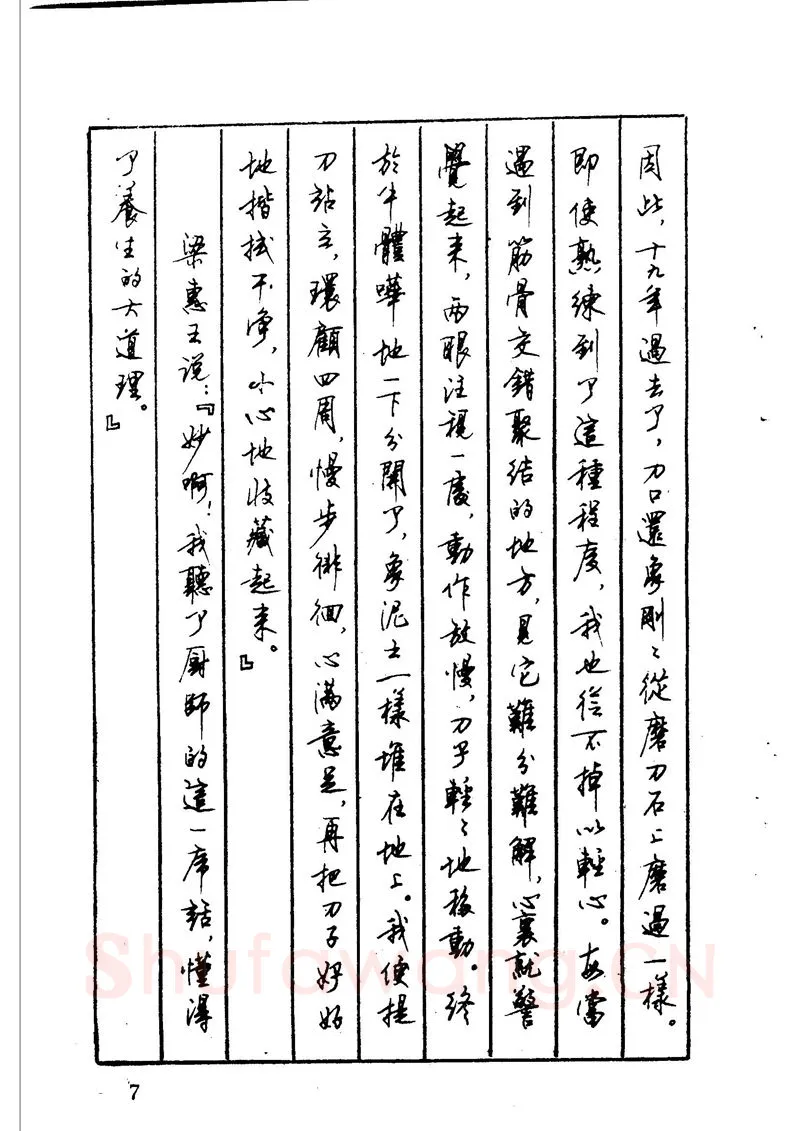 因此，十九年過去了，刀口還象剛〻從磨刀石上磨過一樣。
即使熟練到了這種程度，我也從不掉以輕心。每當
遇到筋骨交錯聚結的地方，見它難分難解，心裏就警
覺起来，两眼注視一處，動作放慢，刀子輕〻地移動。終
於牛體嘩地一下分開了，象泥土一樣堆在地上。我便提
刀站立，環顧四周，慢步徘徊，心滿意足，再把刀子好好
地揩拭干净，小心地收藏起来。』
梁惠王说：『妙啊！我聽了厨師的這一席話，懂得
了養生的大道理。』
7
Shufawang.CN